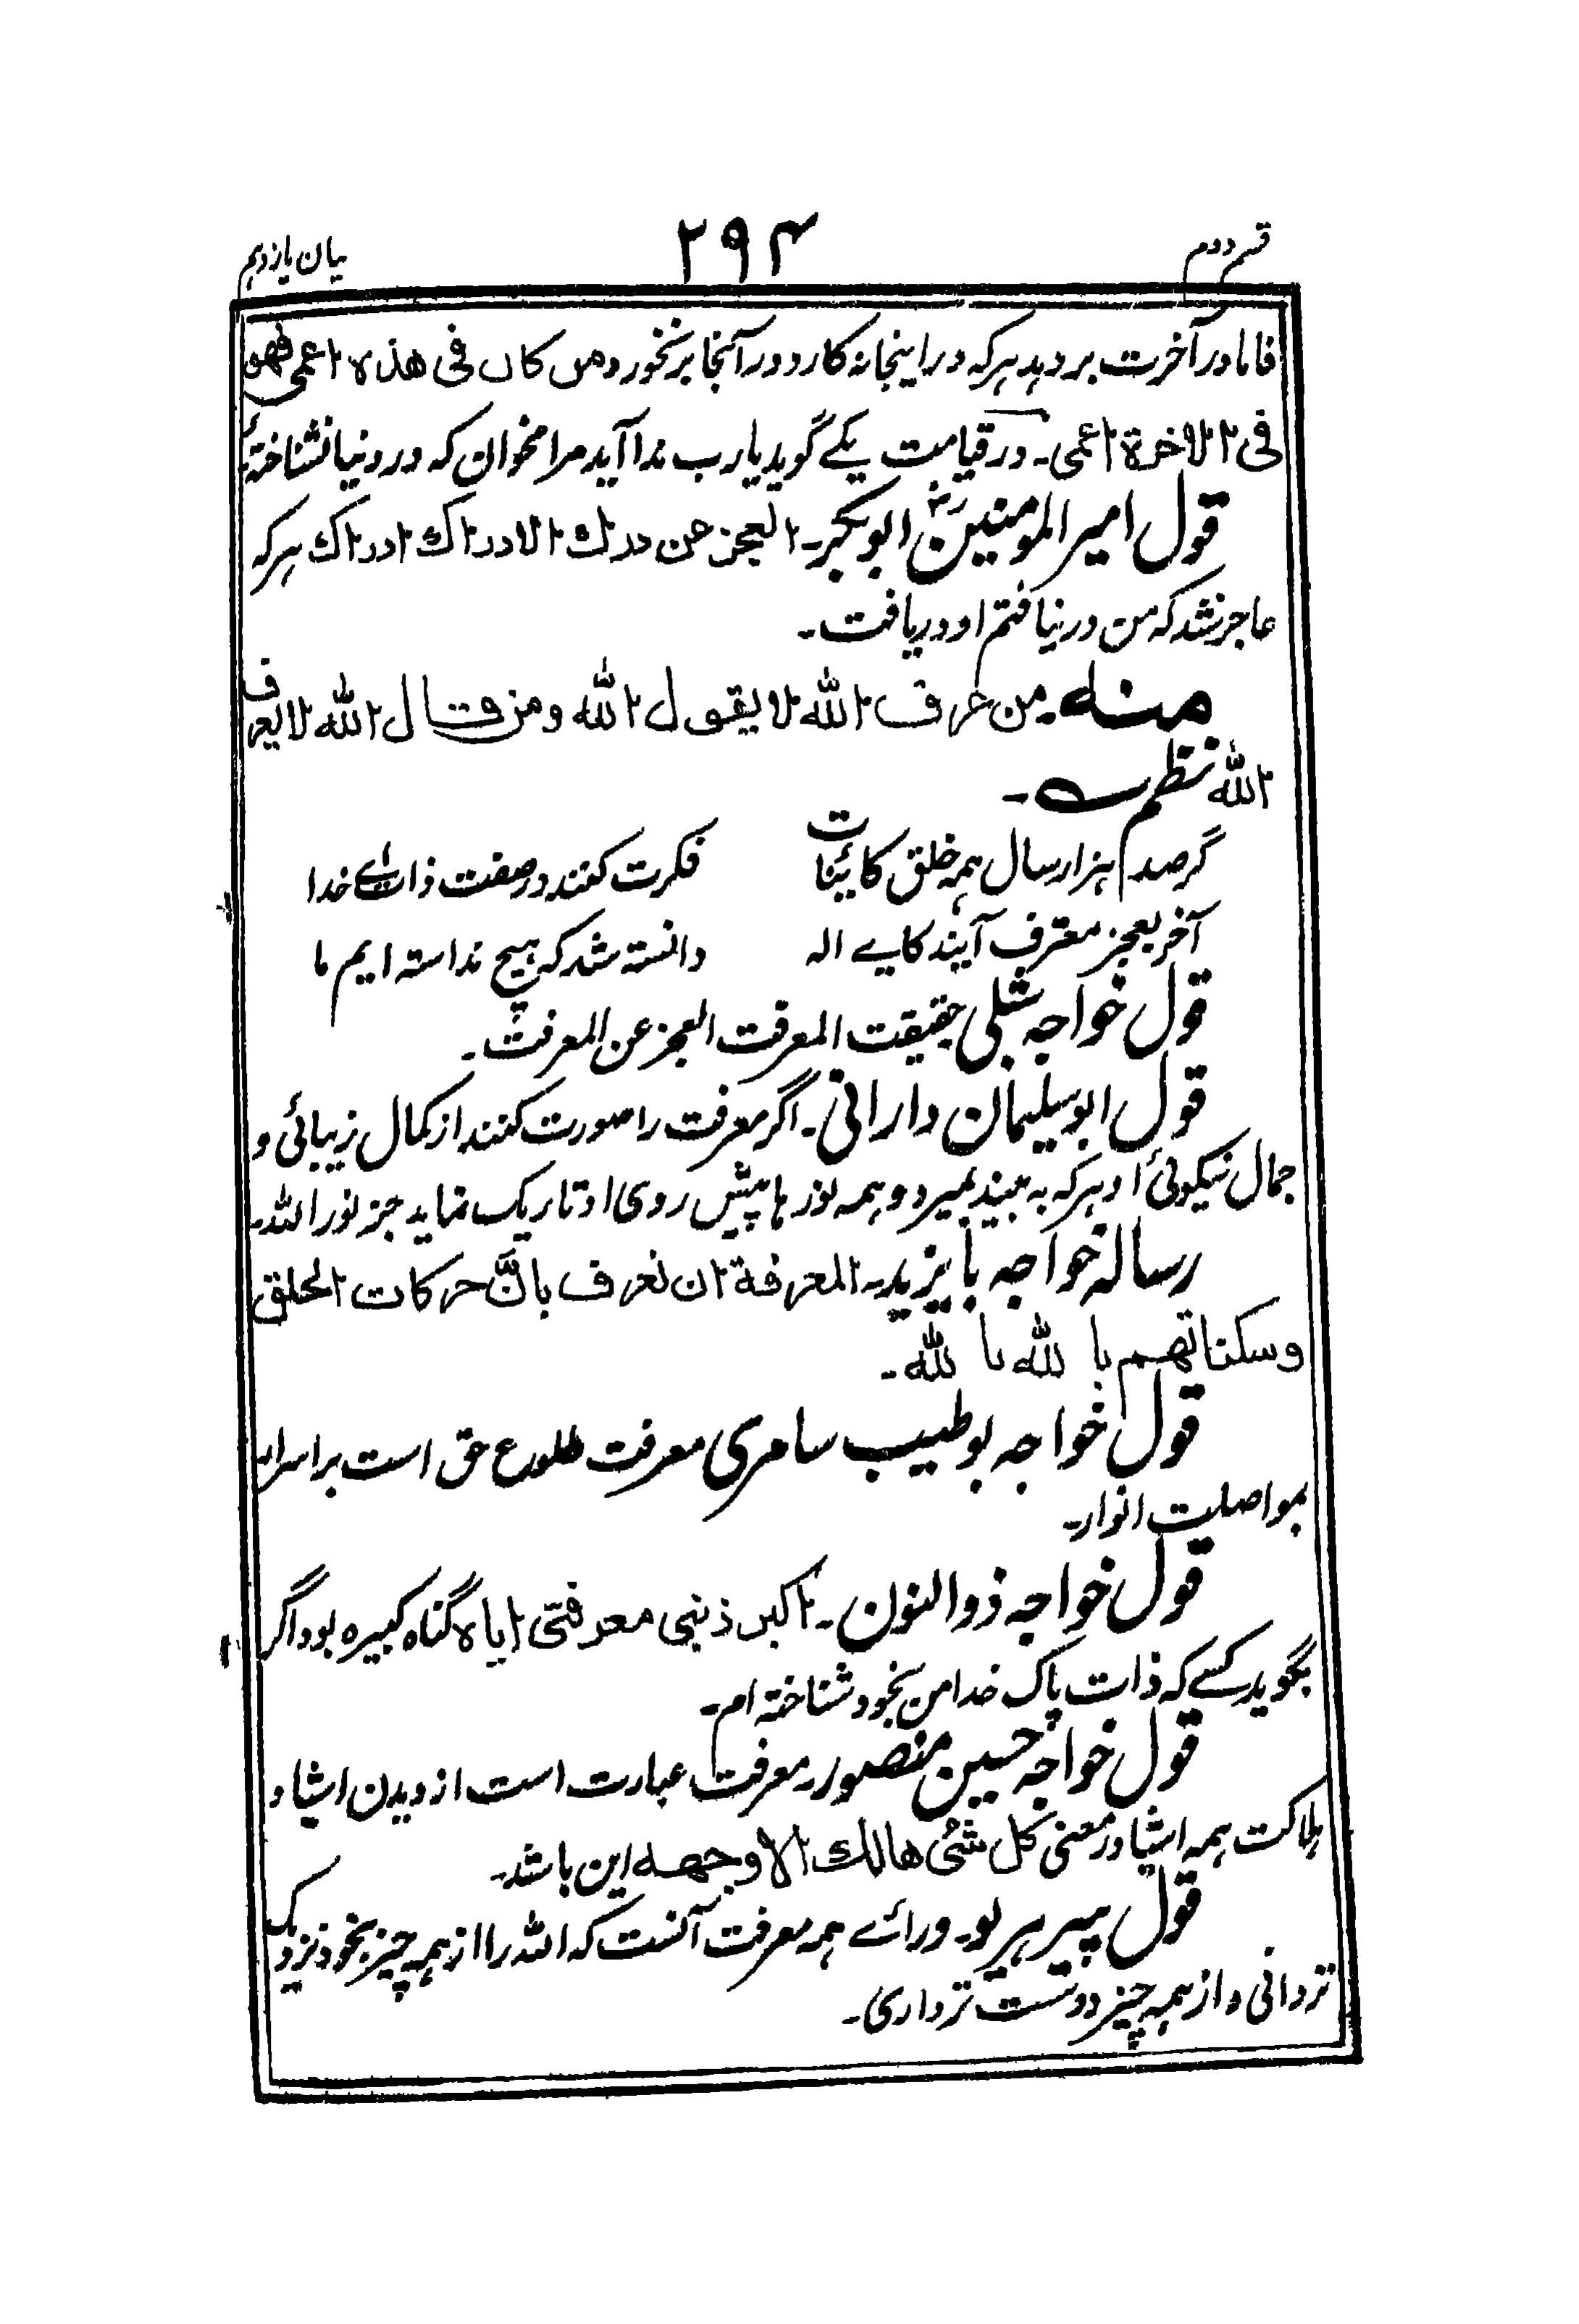 قسم دوم
۲۹۴
بیان یازدہم
فاما در آخرت بر دہد ہرکہ در اینجا نہ کارد در آنجا بر نخورد ومن کان فی هذه اعمی فهو
فی الاخرة اعمی۔ در قیامت یکے گوید یا رب ندا آید مرا مخوان کہ در دنیا نشناختۂ
قول امیر المومنین ابوبکر رضہ۔ العجز عن درك الادراك ادراك ہرکہ
عاجز نشد کہ من در نیافتم او دریافت۔
منه۔ من عرف الله لا یقول الله ومن قال الله لا یعرف
الله نظم ۔
گر صد ہزار سال ہمہ خلق کائنات
فکرت کنند در صفت ذات خدا
آخر بعجز معترف آیند کاے الہ
دانستہ شد کہ ہیچ ندانستہ ایم ما
قول خواجہ شبلی حقیقت المعرفت العجز عن المعرفت۔
قول ابوسلیمان دارانی۔ اگر معرفت را صورت کنند از کمال زیبائی و
جمال نیکوئی او ہرکہ بہ بیند بمیرد و ہمہ نورہا پیش روی او تاریک نماید جز نور اللہ۔
رسالہ خواجہ بایزید۔ المعرفة ان تعرف بانَّ حرکات الخلق
وسکناتهم بالله بالله۔
قول خواجہ بوطیب سامری معرفت طلوع حق است بر اسرار
بمواصلت انوار۔
قول خواجہ ذوالنون۔ اکبر ذنبی معرفتی ایاہ گناہ کبیرہ بود اگر
بگوید کسے کہ ذات پاک خدا من بخود شناختہ ام۔
قول خواجہ حسین منصور۔ معرفت عبارت است از دیدن اشیا و
ہلاکت ہمہ اشیا در معنی کل شئی هالك الا وجهه این باشد۔
قول پیر ہریو۔ ورائے ہمہ معرفت آنست کہ اللہ را از ہمہ چیز بخود نزدیک
تر دانی و از ہمہ چیز دوست تر داری۔